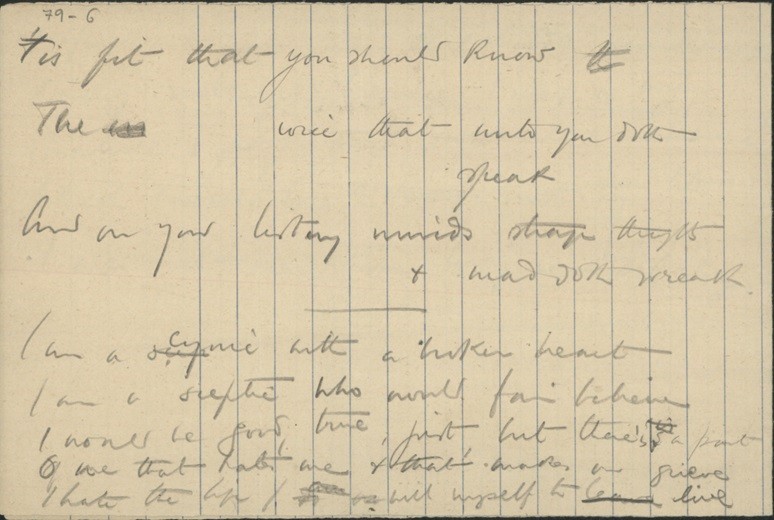 79-6
'tis fit that you should know
The voice that unto you doth
speak
And on your listing minds strange thoughts
& mad doth wreak
I am a cynic with a broken heart
I am a sceptic who would fain believe
I would be good, true, just but there's a part
O me that hates me & that makes me grieve
I hate the life I will myself to leave live